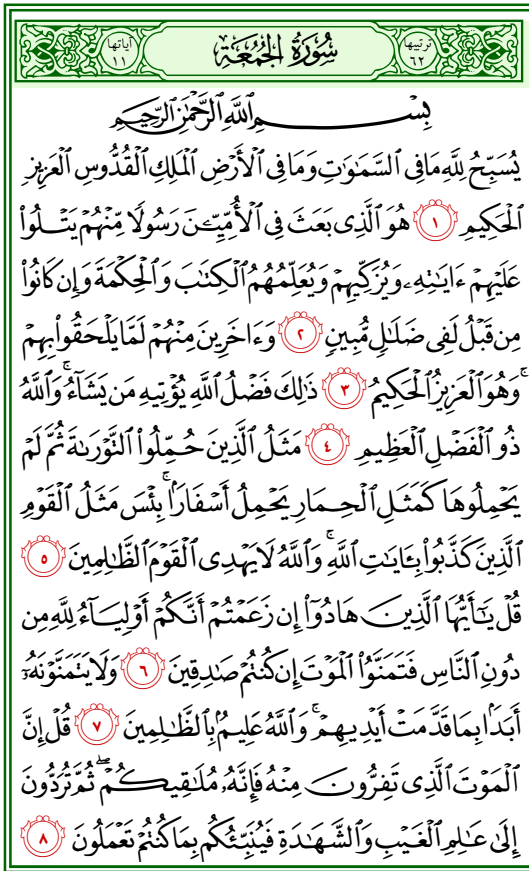 ترتيبها ٦٢ سُورَةُ الجُمُعَةِ آياتها ١١
بِسْمِ اللَّهِ الرَّحْمَٰنِ الرَّحِيمِ
يُسَبِّحُ لِلَّهِ مَا فِي السَّمَٰوَٰتِ وَمَا فِي الْأَرْضِ الْمَلِكِ الْقُدُّوسِ الْعَزِيزِ
الْحَكِيمِ ١ هُوَ الَّذِي بَعَثَ فِي الْأُمِّيِّـۧنَ رَسُولًا مِّنْهُمْ يَتْلُوا۟
عَلَيْهِمْ ءَايَٰتِهِۦ وَيُزَكِّيهِمْ وَيُعَلِّمُهُمُ الْكِتَٰبَ وَالْحِكْمَةَ وَإِن كَانُوا۟
مِن قَبْلُ لَفِي ضَلَٰلٍ مُّبِينٍ ٢ وَءَاخَرِينَ مِنْهُمْ لَمَّا يَلْحَقُوا۟ بِهِمْ
ۚ وَهُوَ الْعَزِيزُ الْحَكِيمُ ٣ ذَٰلِكَ فَضْلُ اللَّهِ يُؤْتِيهِ مَن يَشَآءُ ۚ وَاللَّهُ
ذُو الْفَضْلِ الْعَظِيمِ ٤ مَثَلُ الَّذِينَ حُمِّلُوا۟ التَّوْرَىٰةَ ثُمَّ لَمْ
يَحْمِلُوهَا كَمَثَلِ الْحِمَارِ يَحْمِلُ أَسْفَارًۢا ۚ بِئْسَ مَثَلُ الْقَوْمِ
الَّذِينَ كَذَّبُوا۟ بِـَٔايَٰتِ اللَّهِ ۚ وَاللَّهُ لَا يَهْدِي الْقَوْمَ الظَّٰلِمِينَ ٥
قُلْ يَٰٓأَيُّهَا الَّذِينَ هَادُوٓا۟ إِن زَعَمْتُمْ أَنَّكُمْ أَوْلِيَآءُ لِلَّهِ مِن
دُونِ النَّاسِ فَتَمَنَّوُا۟ الْمَوْتَ إِن كُنتُمْ صَٰدِقِينَ ٦ وَلَا يَتَمَنَّوْنَهُۥٓ
أَبَدًۢا بِمَا قَدَّمَتْ أَيْدِيهِمْ ۚ وَاللَّهُ عَلِيمٌۢ بِالظَّٰلِمِينَ ٧ قُلْ إِنَّ
الْمَوْتَ الَّذِي تَفِرُّونَ مِنْهُ فَإِنَّهُۥ مُلَٰقِيكُمْ ۖ ثُمَّ تُرَدُّونَ
إِلَىٰ عَٰلِمِ الْغَيْبِ وَالشَّهَٰدَةِ فَيُنَبِّئُكُم بِمَا كُنتُمْ تَعْمَلُونَ ٨